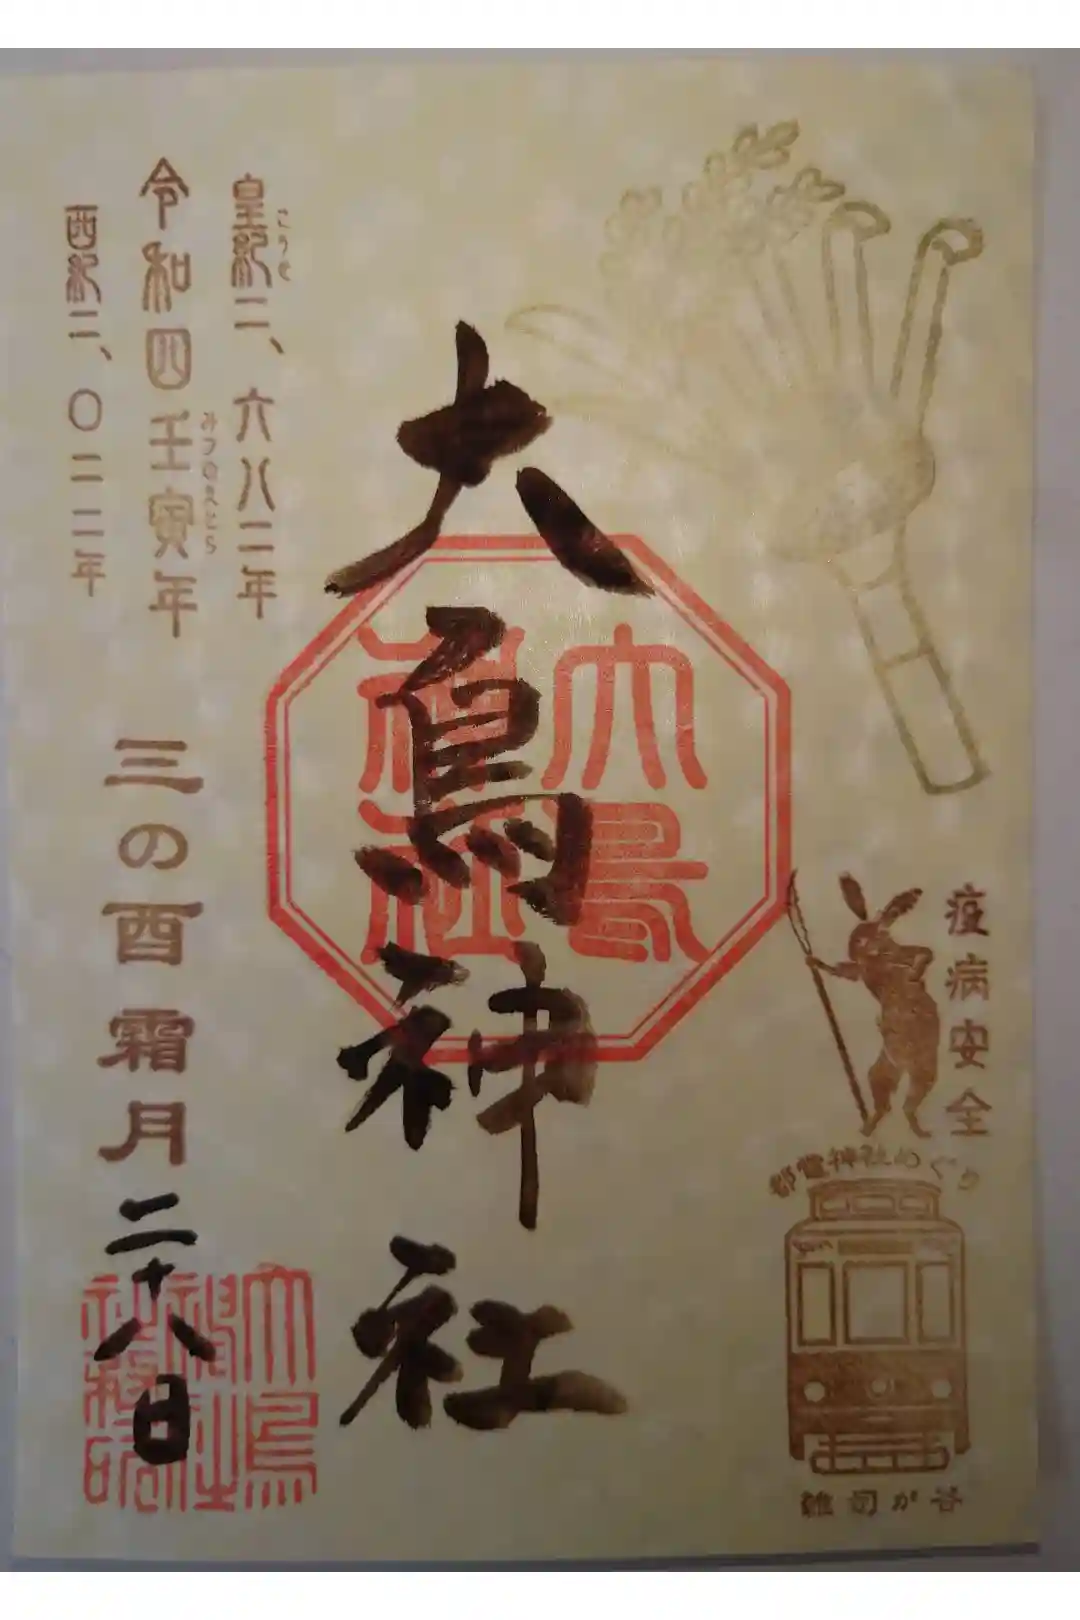 疫病安全
都電神社めぐり
雑司が谷
大鳥神社
大鳥神社
皇紀二、六八二年
こうき
令和四壬寅年
みづのえとら
西紀二、〇二二年
三の酉霜月二十八日
大鳥
神社
社務所